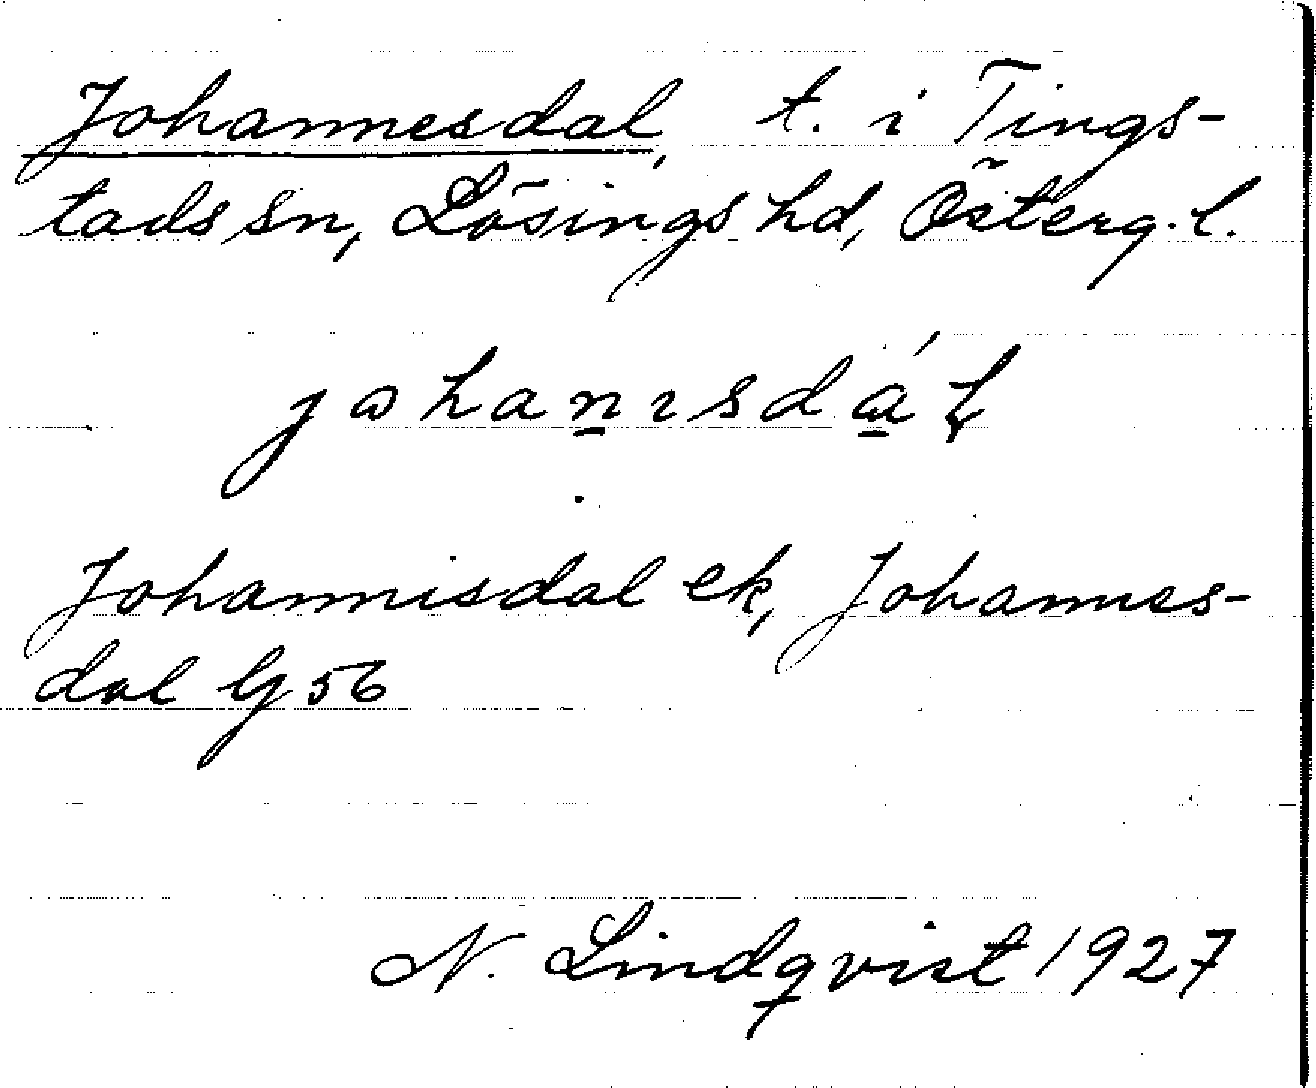 Johannesdal, t. i Tings-
tads sn, Lösings hd, Österg. l.
johanısdál
Johannisdal ek, Johannes-
dal G 56
N. Lindqvist 1927